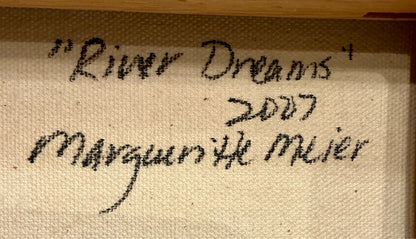 "River Dreams"
2007
Margueritte Meier